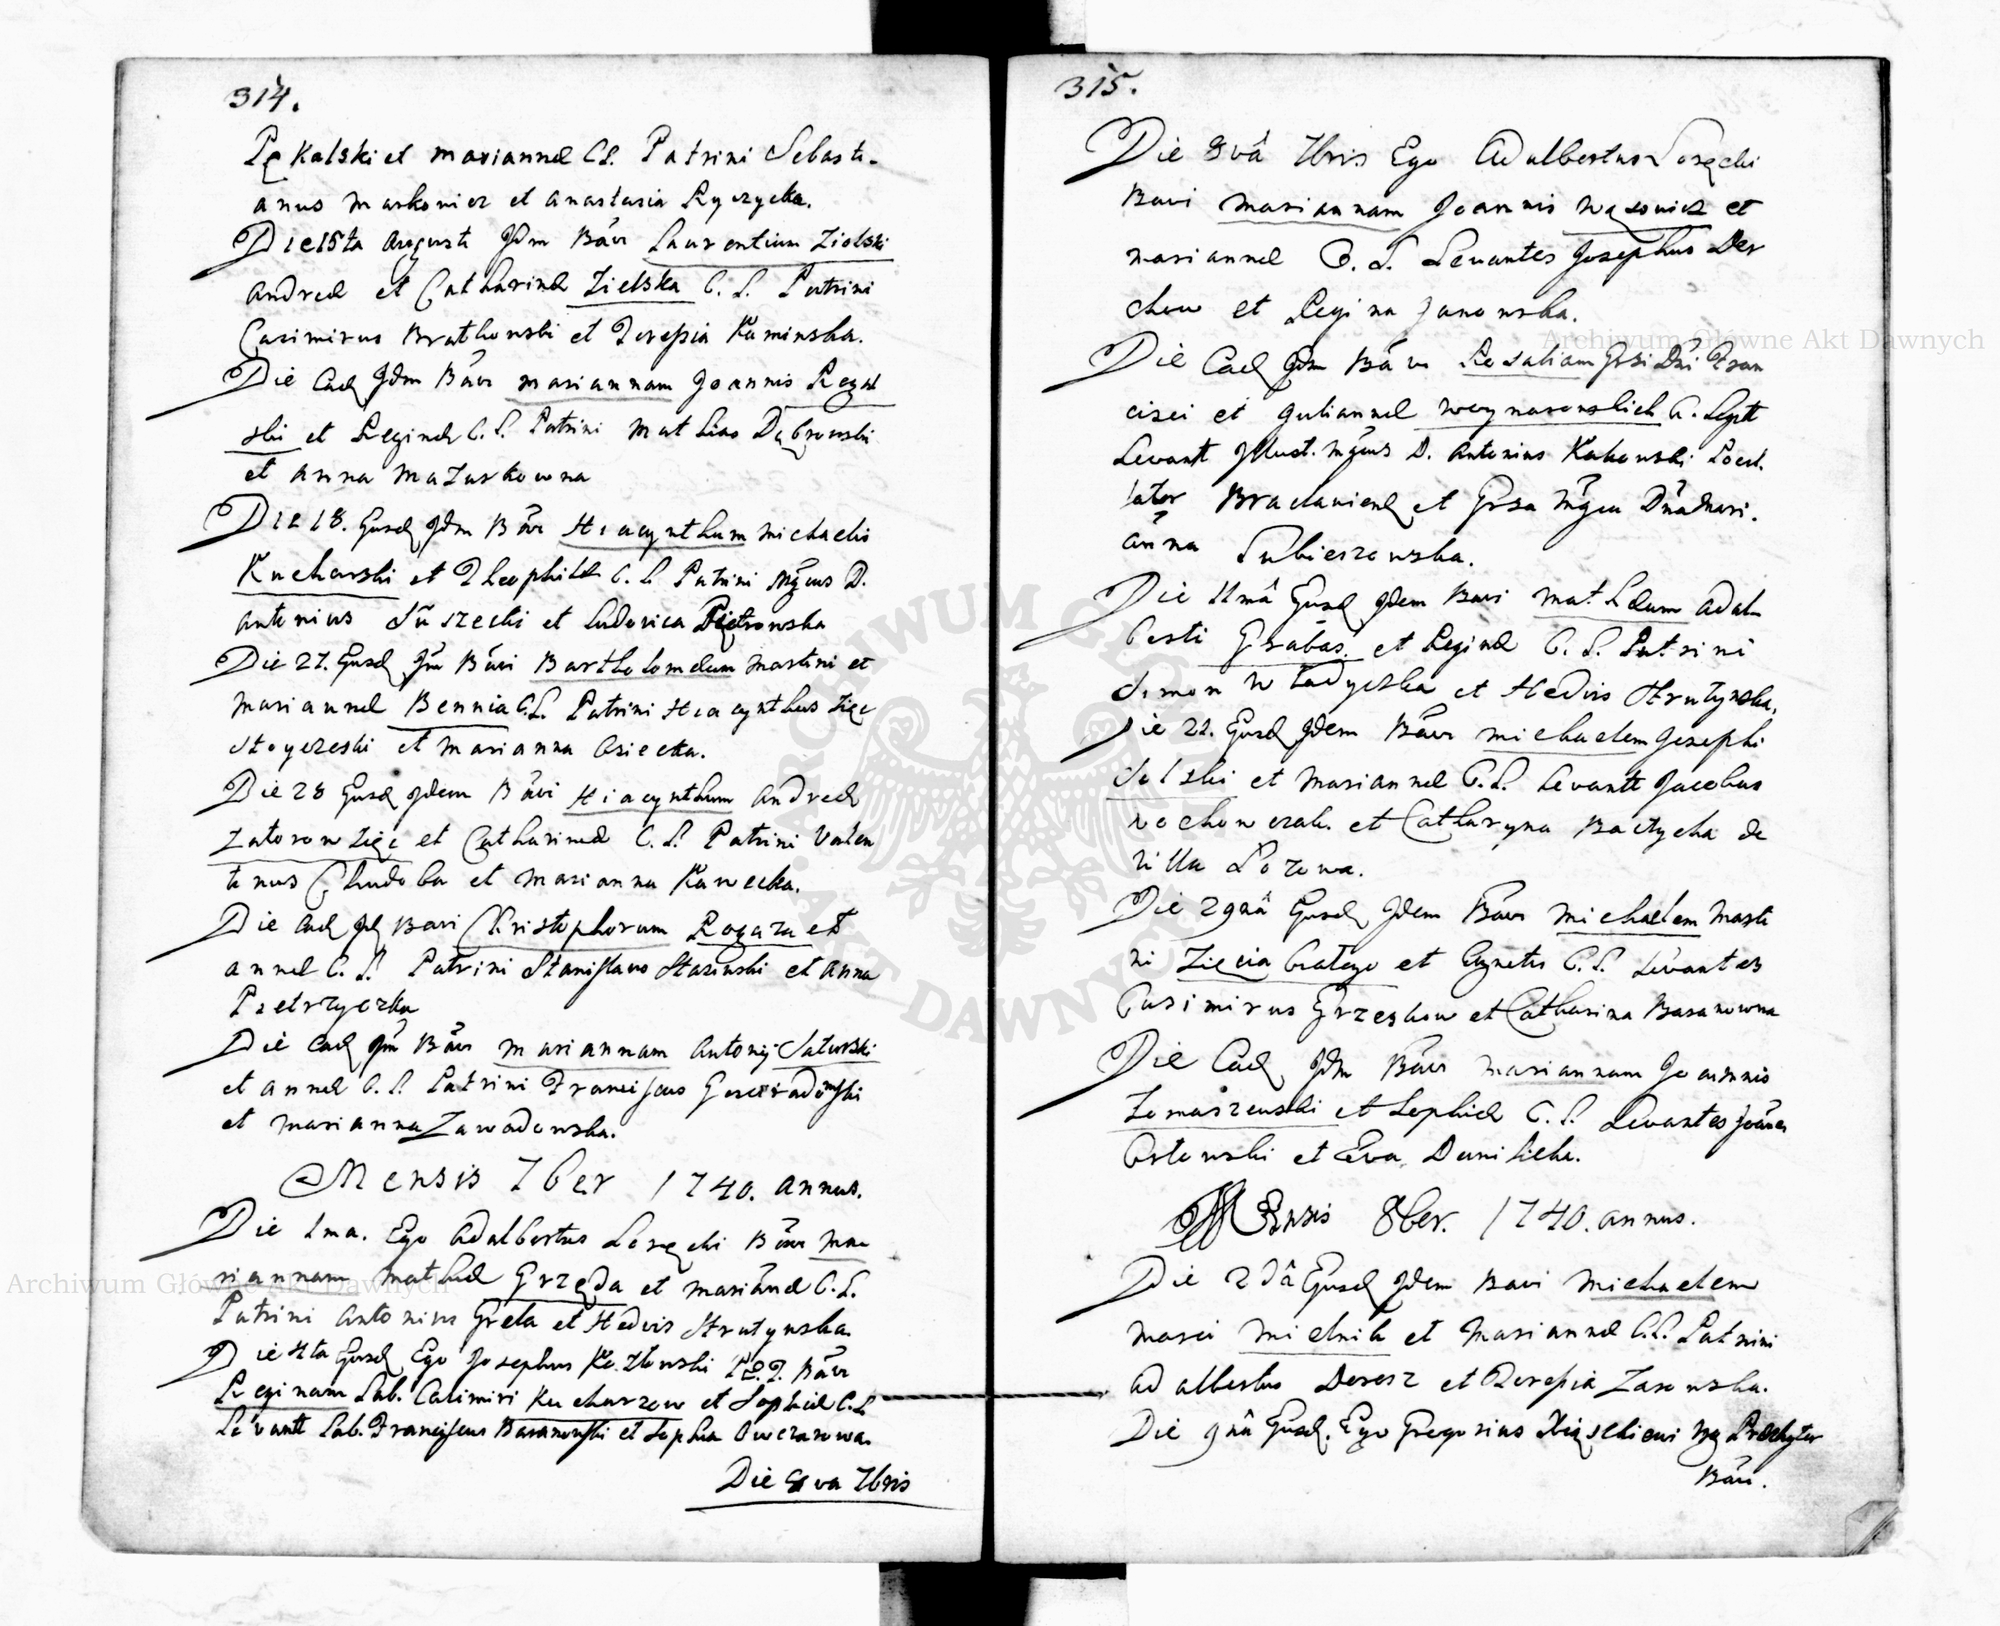 314.
Pękalski et mariannæ CL. Patrini Sebasti-
anus Markowicz et Anastasia Ryczycka.
Die 15ta Augusti Jdm Bãvi Laurentium Zielski
Andreæ et Catharinæ Zielska C. L. Patrini
Casimirus Bratkowski et Teresia Kaminska.
Die Eadē Jdm Bãvi mariannam Joannis Regul
ski et Reginæ C. L. Patrini Mathias Dąbrowski
et Anna Mazurkowna
Die 18. Ejusdē Jdm Bãvi Hiacynthum Michaelis
Kucharski et Theophilæ C. L. Patrini Mgcus D.
Antonius et Ludovica Piętrowska
Die 27. Ejusdē Jdm Bãvi Bartholomæum Martini et
Mariannæ Bennia C. L. Patrini Hiacynthus Zięc
et Marianna Osiecka.
Die 28 Ejusdē Jdem Bãvi Hiacynthum Andreæ
Zatorow Zięc et Catharinæ C. L. Patrini Valen
tinus Chudoba et Marianna Kawecka.
Die Eadē Bavi Christophorum Rogaza et
Annæ C. L. Patrini Stanislaus Stasinski et Anna
Pietrzyczka
Die Eadē Jdm Bãvi mariannam Antonij Saturski
et Annæ C. L. Patrini Franciscus
et Marianna Zawadowska.
Mensis 7ber 1740. Annus.
Die 1ma. Ego Adalbertus Loręcki Bãvi Ma-
riannam Mathiæ Grzęda et Mariãnæ C. L.
Patrini Antonius Greta et Hedvis Strutynska.
Die Ejusdē Ego Josephus Kozłowski Bãvi
Reginam Lab. Casimiri Kucharzow et Sophiæ C. L
Levantt Lab. Franciscus Baranowski et Sophia Owczarowa.
Die 8va 7bris
315.
Die 8vâ 7bris Ego Adalbertus Loręcki
Bavi Mariannam Joannis Wąsowicz et
mariannæ C. L. Levantes Josephus Der
chow et Regina Janowska.
Die Eadē Jdm Bãvi Rosaliam Grsi Dni Fran
cisci et Juliannæ C. Legtt
Levantt Jllust. Mgcus D. Antonius Kakowski
Braclaviens et Grsa Mgca Dna Mari.
anna Lubieszowska.
Die 11mâ Ejusdē Jdem Bavi Mathæum Adal-
berti Grabas. et Reginæ C. L. Patrini
Simon Władyczka et Hedvis Strutynska.
Die 22. Ejusdē Jdem Bãvi Michaelem Josephi
Solski et Mariannæ C. L. Levantt Jacobus
et Catharyna Bartycka de
villa Lozowa.
Die 29nâ Ejusdē Jdem Bãvi Michaelem Marti
ni Zięcia et Agnetis C. L. Levantes
Casimirus Grzeskow et Catharina Baranowna
Die Eadē Jdm Bãvi Mariannam Joannis
Tomaszewski et Sophiæ C. L. Levantes Joãnes
Ostowski et Eva
Mensis 8ber. 1740. Annus.
Die 2dâ Ejusdē Jdem Bavi Michaelem
Marci Mielnik et Mariannæ C. L. Patrini
Adalbertus Deresz et Teresia Zarowska.
Die 9nâ Ejusdē. Ego Gregorius Præsbyter
Bãvi.
Archiwum Główne Akt Dawnych
Archiwum Główne Akt Dawnych
ARCHIWUM GŁÓWNE AKT DAWNYCH